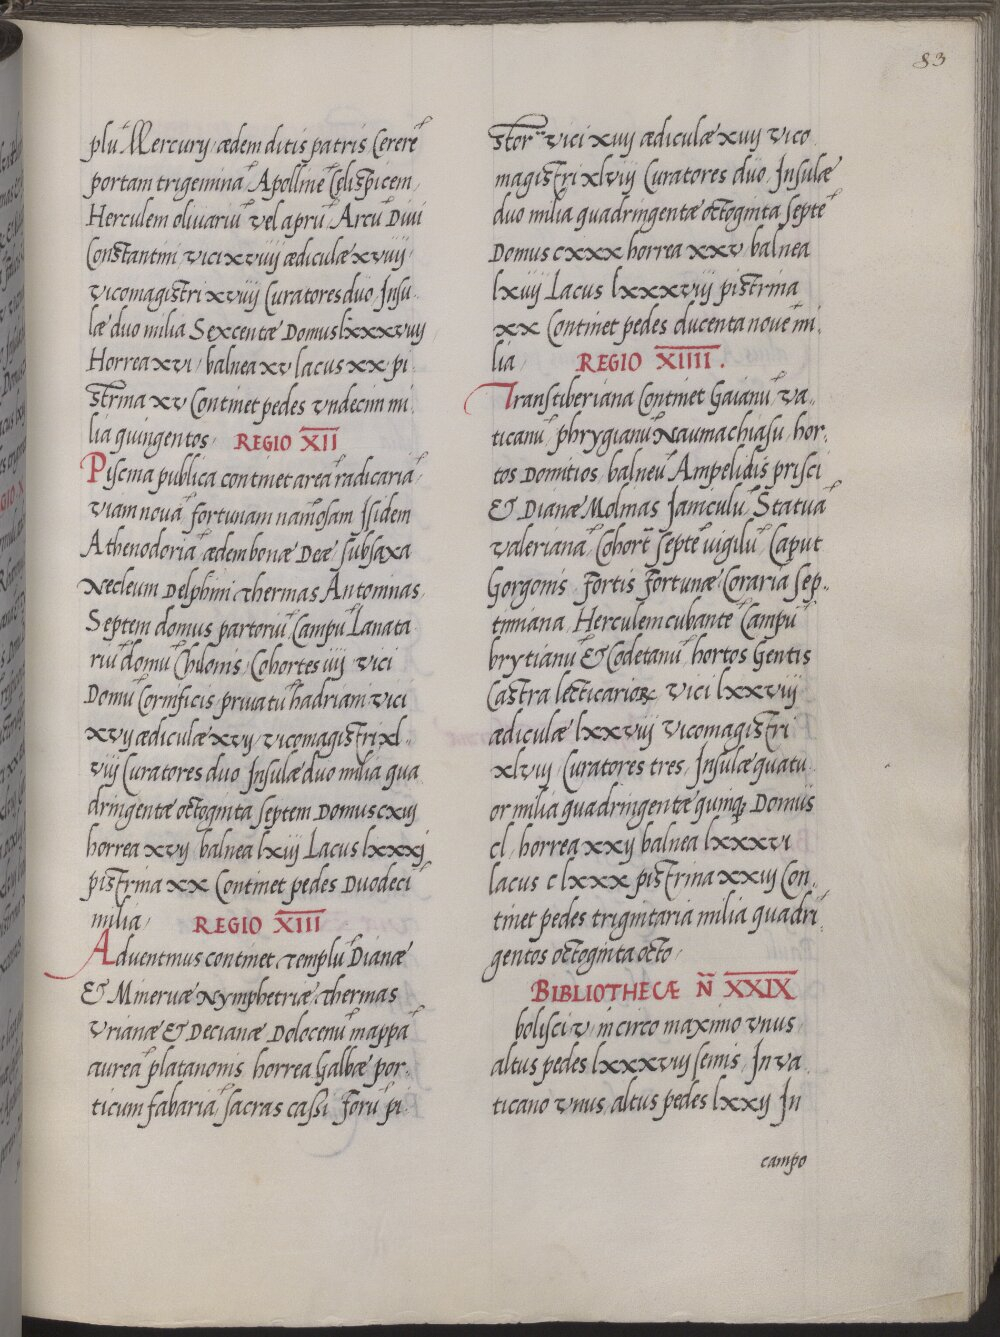 83
plū Mercurÿ ædem ditis patris Cererē
portam trigeminā Apollinē Cælispicem
Herculem oliuariū vel aprū Arcū Diui
Constantini, vici xviiÿ ædiculæ xviiÿ
vicomagistri xviiÿ Curatores duo, Insu-
læ duo milia Sexcentæ Domus lxxxviiÿ
Horrea xvi, balnea xv lacus xx, pi-
strina xv Continet pedes vndecim mi
lia quingentos, REGIO XII
Piscina publica continet areā radicariā
viam nouā, fortunam namosam Isidem
Athenodoriā ædem bonæ Deæ, subsaxa
Necleum Delphini Thermas Antoninas,
Septem domus partoriū, Campū Lanata
riū domū Chilonis, Cohortes iiij vici
Domū Cornificis, priuatū hadriani vici
xvÿ ædiculæ xvÿ, vicomagistri xl-
viÿ Curatores duo Insulæ duo milia qua
dringentæ octoginta septem Domus cxiÿ
horrea xvÿ balnea lxiiÿ Lacus lxxxj
pistrina xx Continet pedes Duodeci
milia, REGIO XIII
Aduentinus continet Templū Dianæ
& Mineruæ Nymphetriæ Thermas
vrianæ & Decianæ Dolocenū mappā
aureā platanonis horrea Galbæ por-
ticum fabariā, sacras cassi Forū pi-
storū vici xviÿ ædiculæ xviÿ vico
magistri xlviÿ Curatores duo, Insulæ
duo milia quadringentæ octoginta septē
Domus cxxx horrea xxv balnea
lxiiÿ Lacus lxxxviiÿ pistrina
xx Continet pedes ducenta nouē mi-
lia REGIO XIIII.
Transtiberiana Continet Gaianū, va-
ticanū, phrygianū Naumachiasū, hor-
tos Domitios, balneū Ampelidis prisci
& Dianæ Molinas Janiculū, Statuā
valerianā, Cohort̄ septē vigilū, Caput
Gorgonis, Fortis Fortunæ Coraria Sep-
timiana Herculem cubantē Campū
brytianū & Codetanū, hortos Gentis
Castra lecticarioꝝ vici lxxviÿ
ædiculæ lxxviÿ vicomagistri
xlviiÿ, Curatores tres, Insulæ quatu
or milia quadringentæ quinq; Domus
cl, horrea xxÿ balnea lxxxvi
lacus clxxx pistrina xxiiÿ Con-
tinet pedes trigintaria milia quadri-
gentos octoginta octo,
BIBLIOTHECÆ Ñ XXIX
bolisci v, in circo maximo vnus
altus pedes lxxxviiÿ semis, In va
ticano vnus, altus pedes lxxÿ In
campo